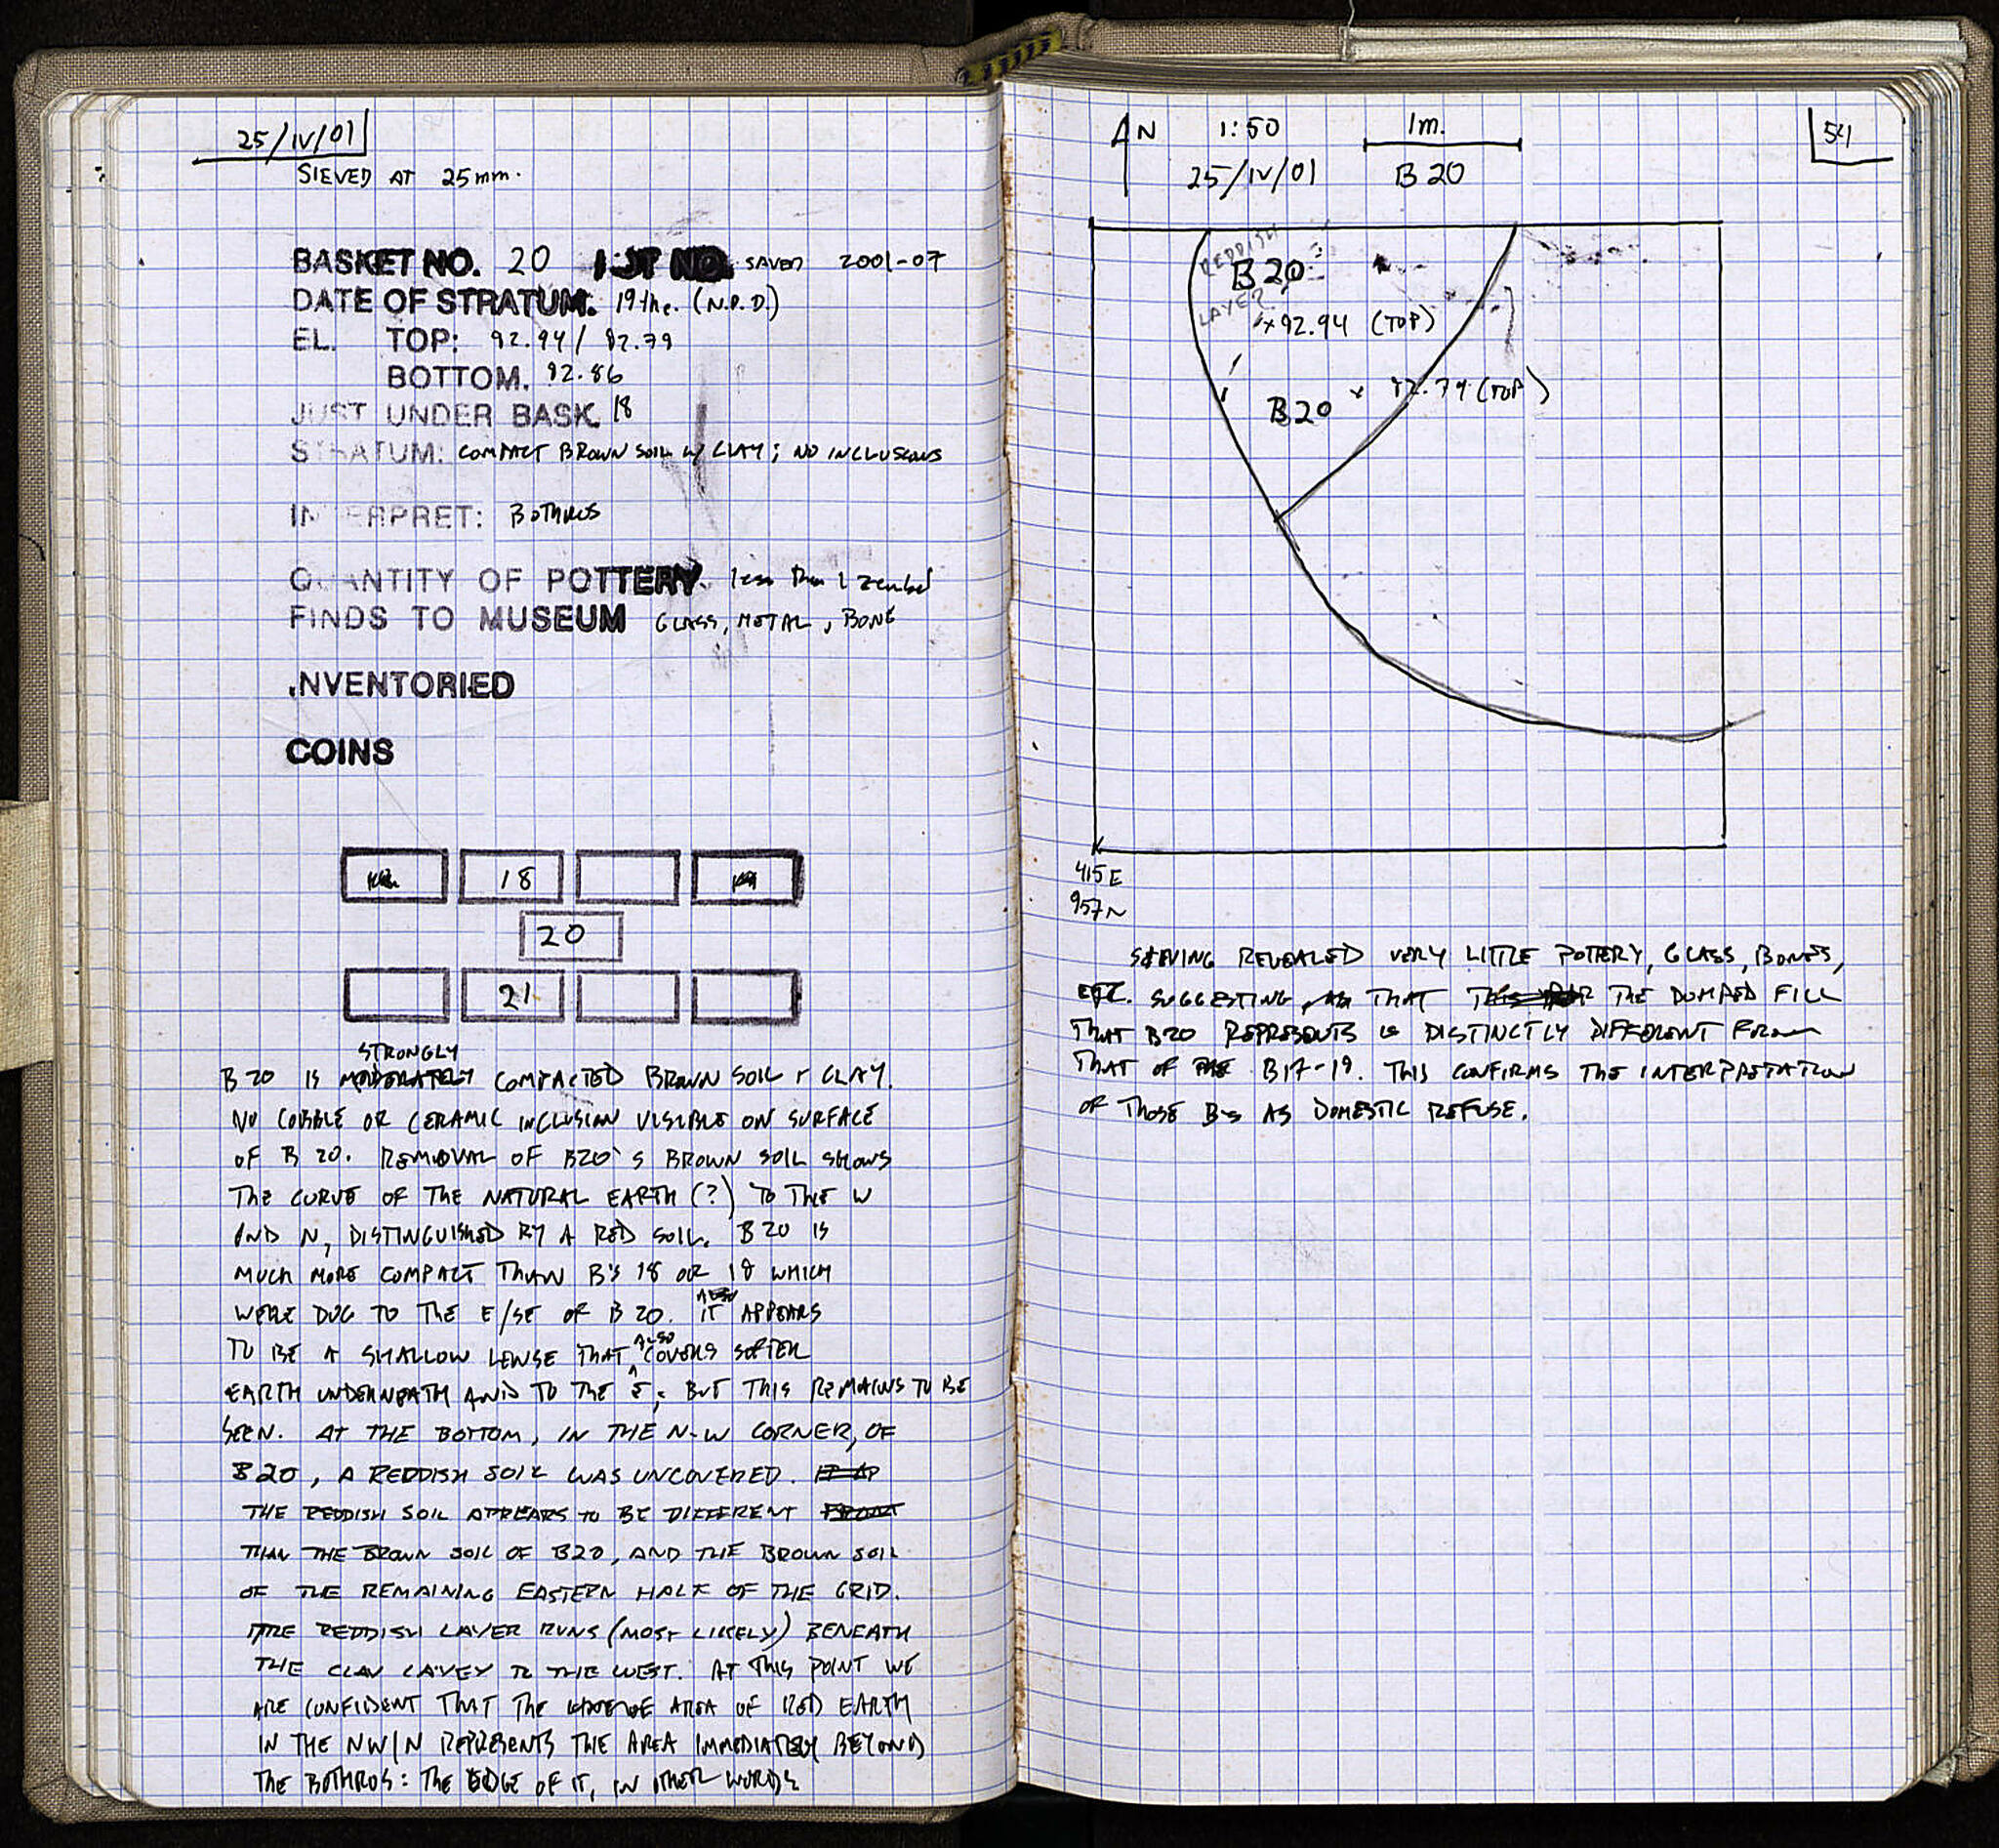 25/IV/01
SIEVED AT 25mm.
BASKET NO. 20 LOT NO. SAVED 2001-07
DATE OF STRATUM. 19thc. (N.P.D.)
EL. TOP: 82.94 / 82.79
BOTTOM. 82.86
JUST UNDER BASK. 18
STRATUM: COMPACT BROWN SOIL W/ CLAY; NO INCLUSIONS
INTERPRET: BOTHROS
QUANTITY OF POTTERY. less than 1 zembel
FINDS TO MUSEUM GLASS, METAL, BONE
INVENTORIED
COINS
18
20
21
STRONGLY
B 20 IS MODERATELY COMPACTED BROWN SOIL + CLAY.
NO COBBLE OR CERAMIC INCLUSION VISIBLE ON SURFACE
OF B 20. REMOVAL OF B20'S BROWN SOIL SHOWS
THE CURVE OF THE NATURAL EARTH (?) TO THE W
AND N, DISTINGUISHED BY A RED SOIL. B 20 IS
MUCH MORE COMPACT THAN B'S 18 OR 18 WHICH
WERE DUG TO THE E/SE OF B 20. IT APPEARS
TO BE A SHALLOW LENSE THAT ALSO COVERS SOFTER
EARTH UNDERNEATH AND TO THE E, BUT THIS REMAINS TO BE
SEEN. AT THE BOTTOM, IN THE N-W CORNER, OF
B20, A REDDISH SOIL WAS UNCOVERED.
THE REDDISH SOIL APPEARS TO BE DIFFERENT FROM
THAN THE BROWN SOIL OF B20, AND THE BROWN SOIL
OF THE REMAINING EASTERN HALF OF THE GRID.
THE REDDISH LAYER RUNS (MOST LIKELY) BENEATH
THE CLAY LAYEY TO THE WEST. AT THIS POINT WE
ARE CONFIDENT THAT THE AREA OF RED EARTH
IN THE NW/N REPRESENTS THE AREA IMMEDIATELY BEYOND
THE BOTHROS: THE EDGE OF IT, IN OTHER WORDS
N 1:50 1m.
54
25/IV/01 B 20
REDDISH
B 20
LAYER
x 82.94 (TOP)
B20 x 82.79 (TOP)
415E
957N
SIEVING REVEALED VERY LITTLE POTTERY, GLASS, BONES,
ETC. SUGGESTING THAT THE DUMPED FILL
THAT B20 REPRESENTS IS DISTINCTLY DIFFERENT FROM
THAT OF B17-19. THIS CONFIRMS THE INTERPRETATION
OF THOSE B's AS DOMESTIC REFUSE.